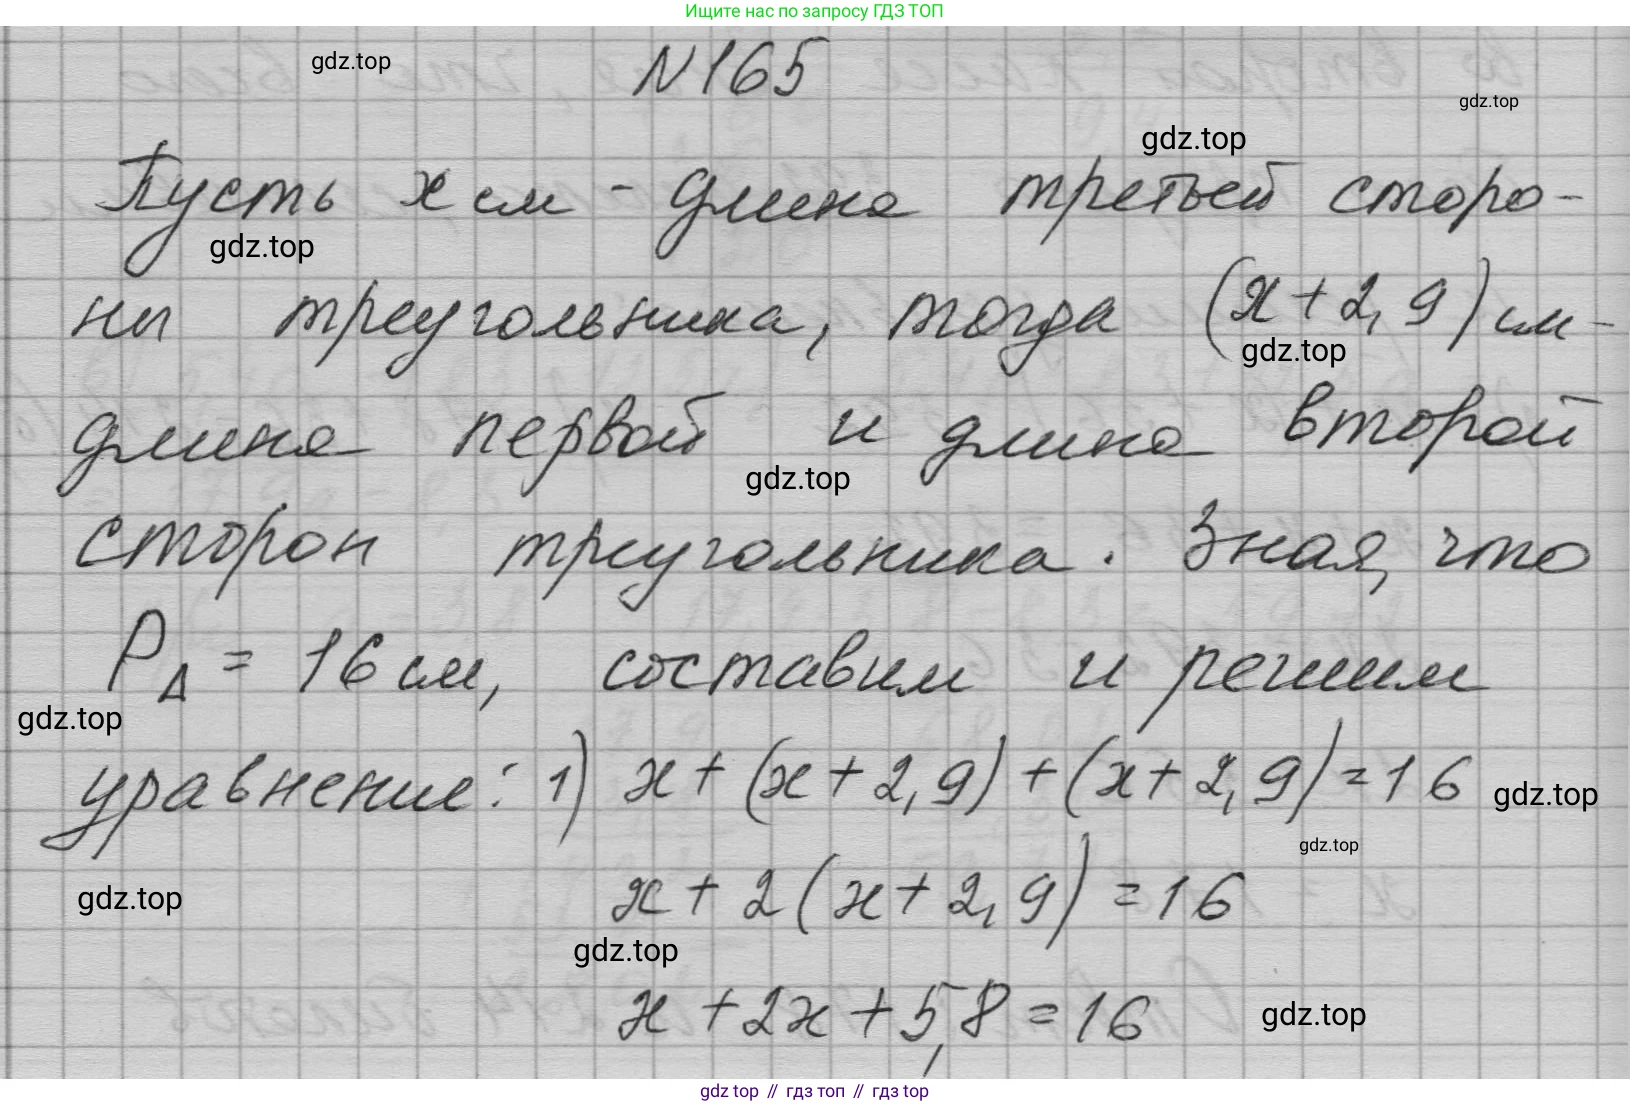 Ищите нас по запросу ГДЗ ТОП
gdz.top
N165
gdz.top
gdz.top
Пусть x см - длина третьей сторо-
gdz.top
ны треугольника, тогда (x+2,9) см-
gdz.top
длина первой и длина второй
gdz.top
сторон треугольника. Зная, что
PΔ = 16 см, составим и решим
gdz.top
уравнение: 1) x+(x+2,9)+(x+2,9)=16
gdz.top
gdz.top
x+2(x+2,9)=16
gdz.top
gdz.top
x+2x+5,8=16
gdz.top
gdz top // гдз топ // gdz top